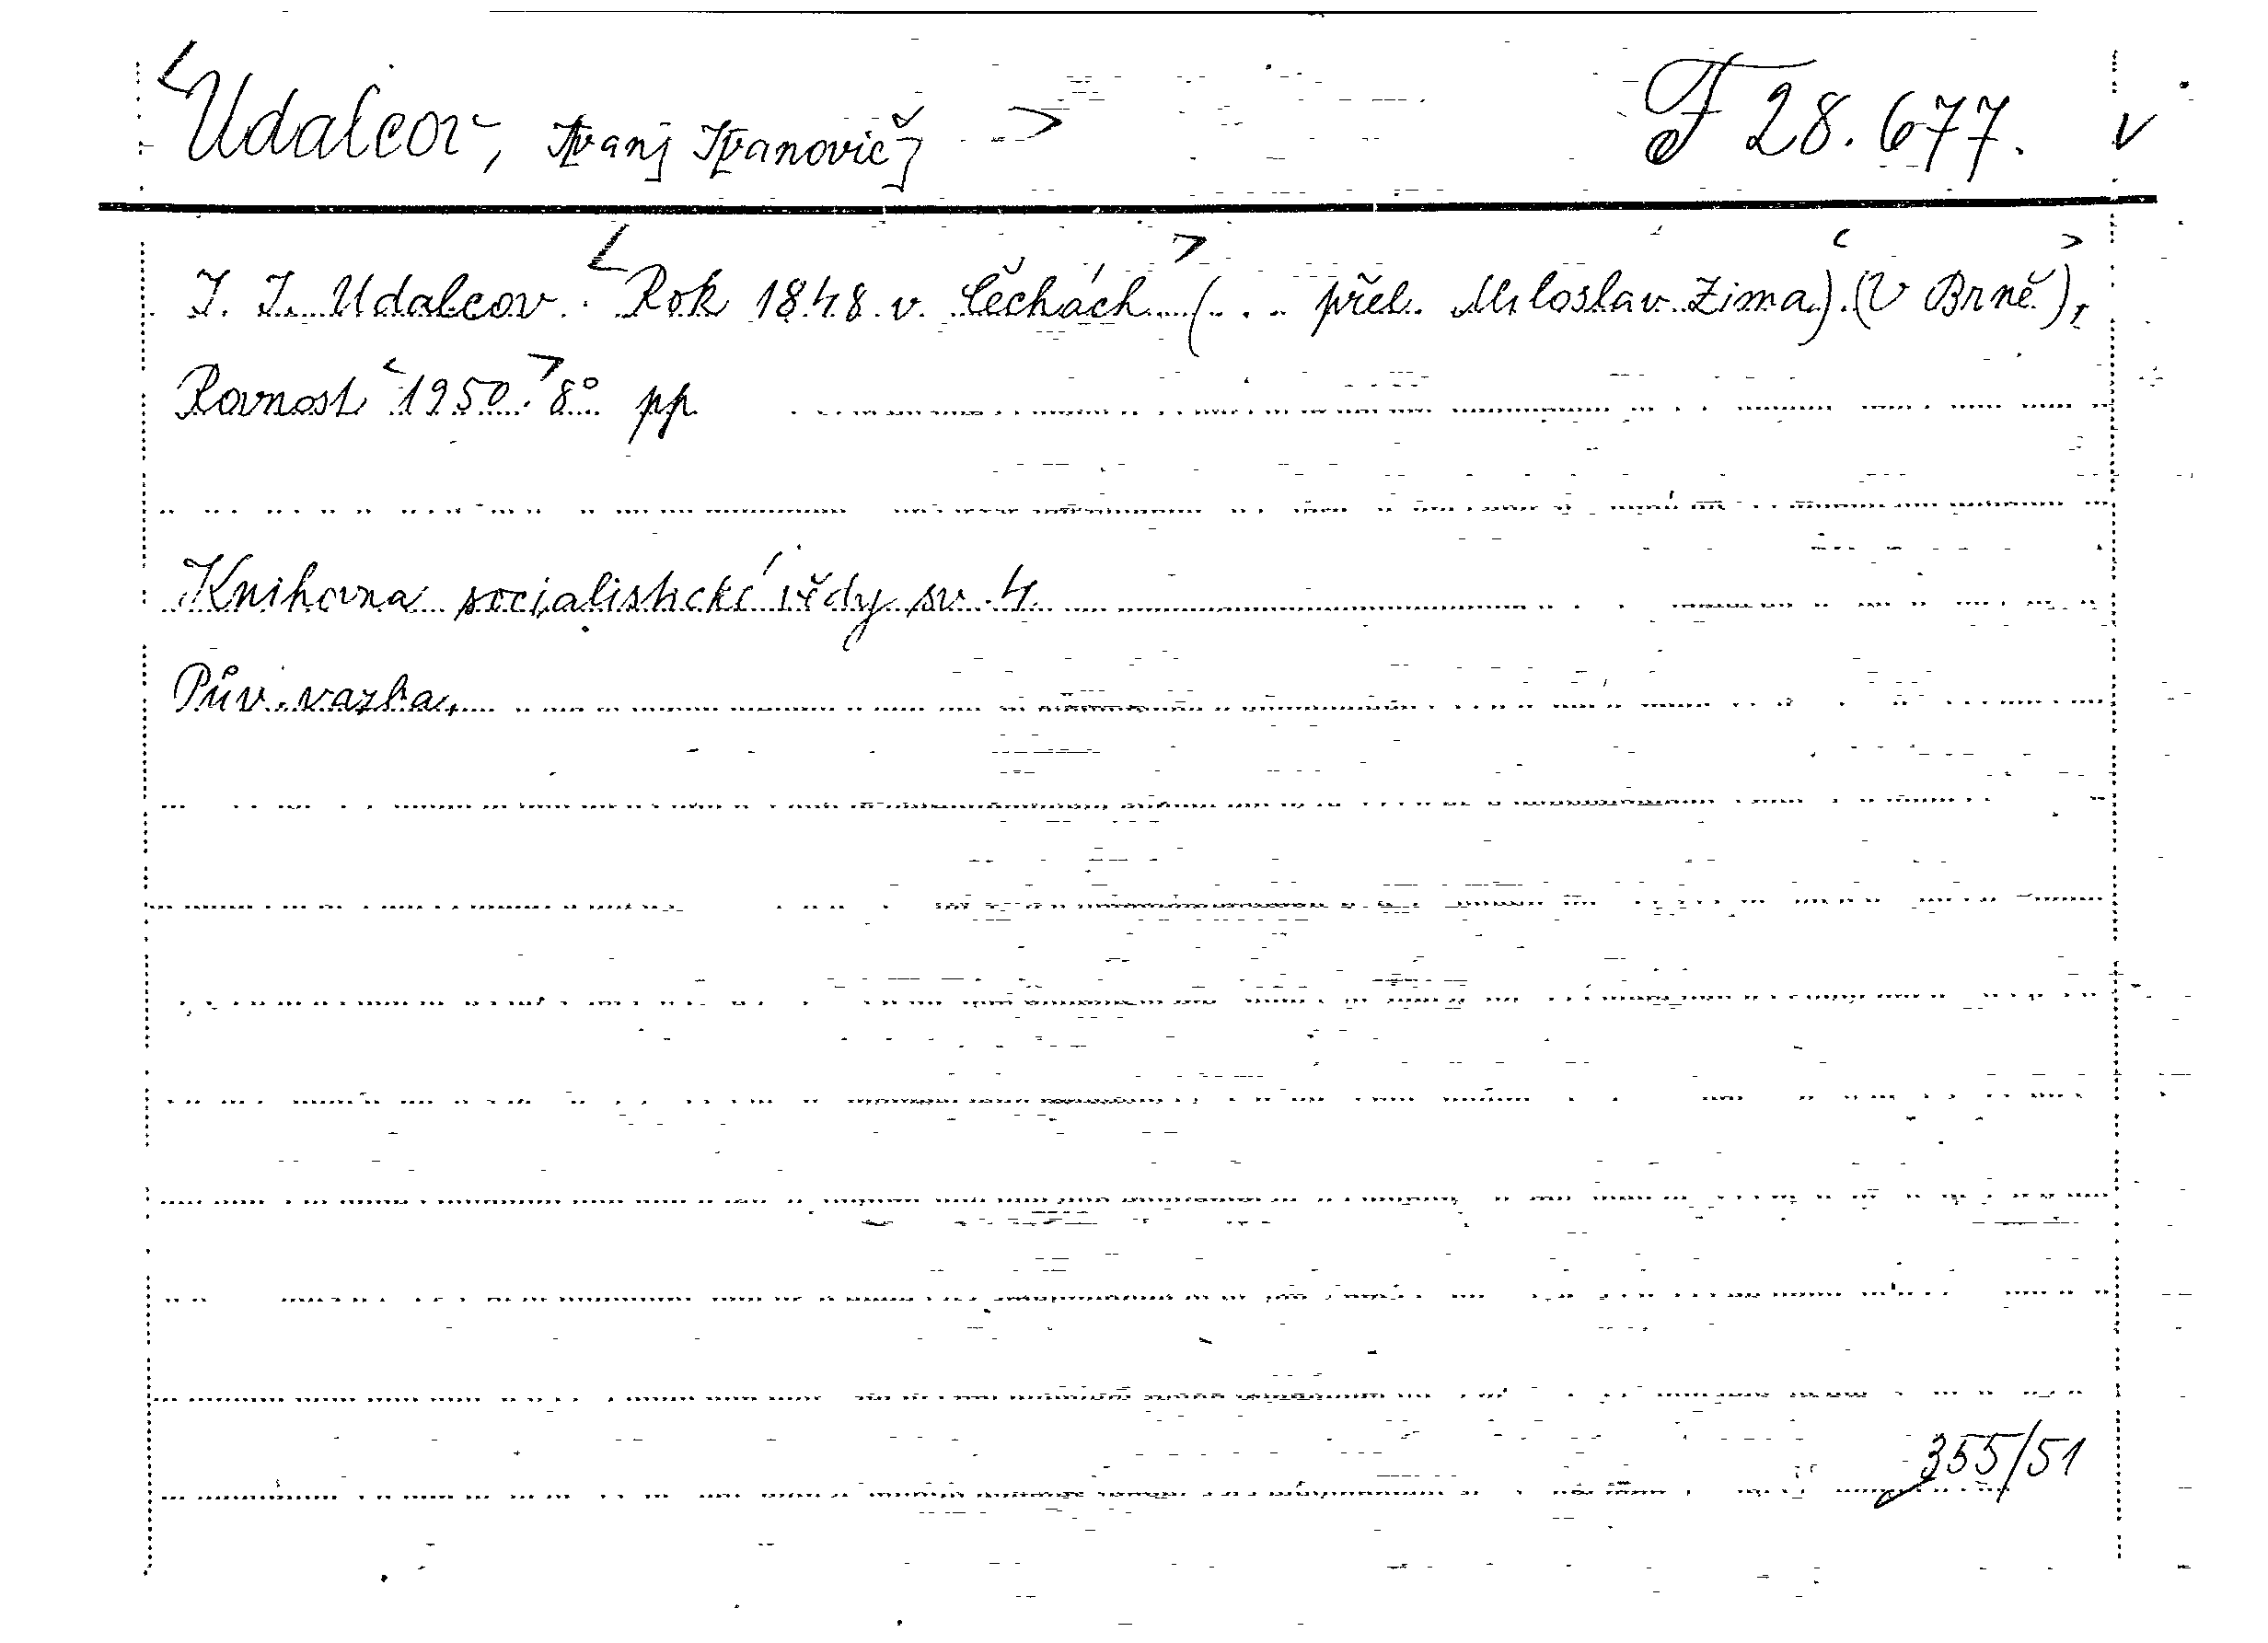 <Udalcov, I[van] I[vanovič] > F 28.677. v
I. I. Udalcov: <Rok 1848 v Čechách> (... přel. Miloslav Zima). (<V Brně>),
Rovnost <1950.> 8° pp.
Knihovna socialistické vědy sv. 4.
Pův. vazba.
355/51